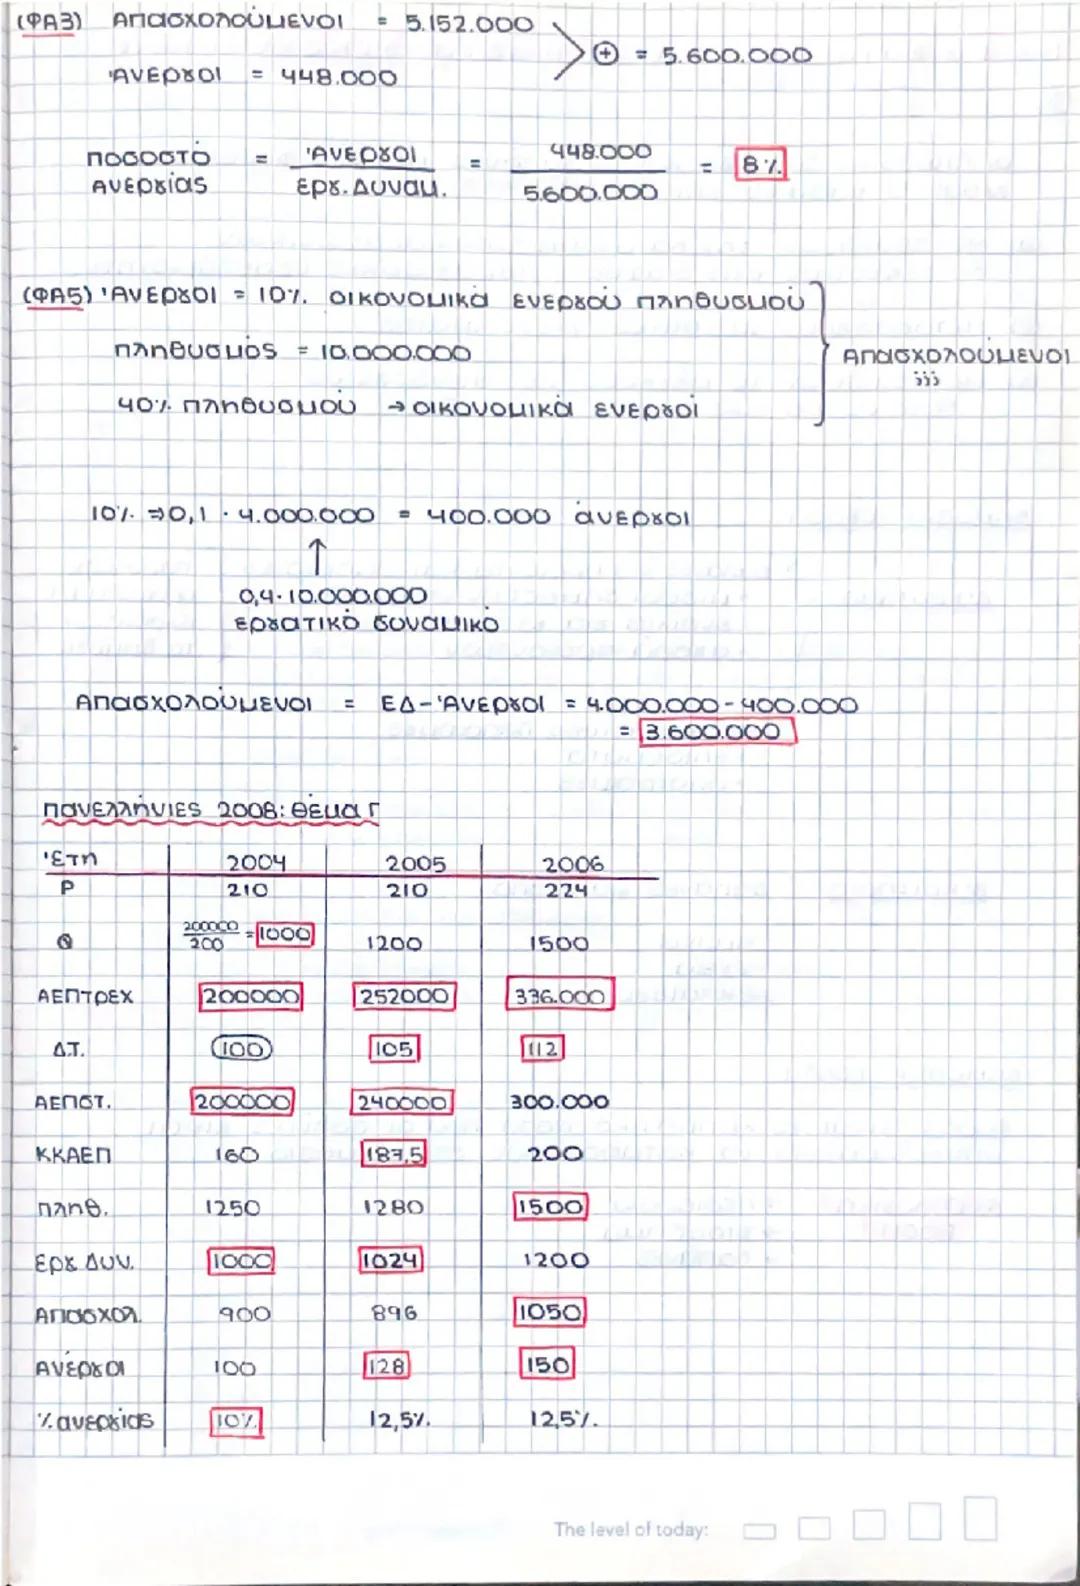 (ΦΑ3) Απασχολούμενοι = 5.152.000
⊕ = 5.600.000
Άνεργοι = 448.000
Ποσοστό Ανεργίας = Άνεργοι / Εργ. Δυναμ. = 448.000 / 5.600.000 = 8%
(ΦΑ5) Άνεργοι = 10% οικονομικά ενεργού πληθυσμού
Πληθυσμός = 10.000.000
Απασχολούμενοι
;;;
40% πληθυσμού → οικονομικά ενεργοί
10% ⇒ 0,1 · 4.000.000 = 400.000 άνεργοι
↑
0,4 · 10.000.000
εργατικό δυναμικό
Απασχολούμενοι = ΕΔ - Άνεργοι = 4.000.000 - 400.000
= 3.600.000
Πανελλήνιες 2008: Θέμα Γ
Έτη 2004 2005 2006
P 210 210 224
Q 200000/200 = 1000 1200 1500
ΑΕΠτρεχ 200000 252000 336.000
Δ.Τ. 100 105 112
ΑΕΠστ. 200000 240000 300.000
ΚΚΑΕΠ 160 187,5 200
Πληθ. 1250 1280 1500
Εργ Δυν. 1000 1024 1200
Απασχολ. 900 896 1050
Ανέργοι 100 128 150
% ανεργίας 10% 12,5% 12,5%.
The level of today: